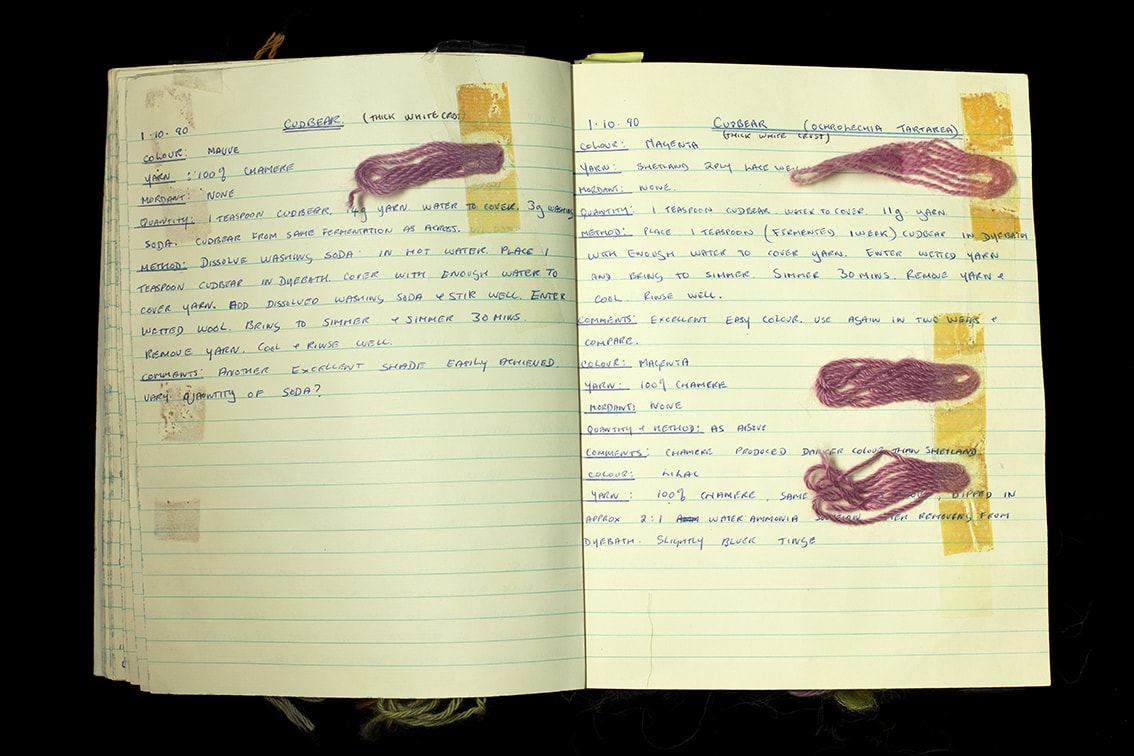 1.10.90 CUDBEAR. (THICK WHITE CRUST
COLOUR: MAUVE
YARN: 100% CHAMERE
MORDANT: NONE
QUANTITY: 1 TEASPOON CUDBEAR. 4g YARN. WATER TO COVER. 3g WASHING
SODA. CUDBEAR FROM SAME FERMENTATION AS ACROSS.
METHOD: DISSOLVE WASHING SODA IN HOT WATER. PLACE 1
TEASPOON CUDBEAR IN DYEBATH. COVER WITH ENOUGH WATER TO
COVER YARN. ADD DISSOLVED WASHING SODA & STIR WELL. ENTER
WETTED WOOL. BRING TO SIMMER & SIMMER 30 MINS.
REMOVE YARN. COOL & RINSE WELL.
COMMENTS: ANOTHER EXCELLENT SHADE EASILY ACHIEVED.
VARY QUANTITY OF SODA?
1.10.90 CUDBEAR (OCHROLECHIA TARTAREA)
(THICK WHITE CRUST)
COLOUR: MAGENTA
YARN: SHETLAND 2PLY LACE
MORDANT: NONE.
QUANTITY: 1 TEASPOON CUDBEAR. WATER TO COVER. 11g YARN.
METHOD: PLACE 1 TEASPOON (FERMENTED 1 WEEK) CUDBEAR IN DYEBATH
WITH ENOUGH WATER TO COVER YARN. ENTER WETTED YARN
AND BRING TO SIMMER. SIMMER 30 MINS. REMOVE YARN &
COOL. RINSE WELL.
COMMENTS: EXCELLENT EASY COLOUR. USE AGAIN IN TWO WEEKS &
COMPARE.
COLOUR: MAGENTA
YARN: 100% CHAMERE
MORDANT: NONE
QUANTITY & METHOD: AS ABOVE
COMMENTS: CHAMERE PRODUCED DARKER COLOUR THAN SHETLAND
COLOUR: LILAC
YARN: 100% CHAMERE, SAME DIPPED IN
APPROX 2:1 WATER:AMMONIA REMOVING FROM
DYEBATH. SLIGHTLY BLUER TINGE